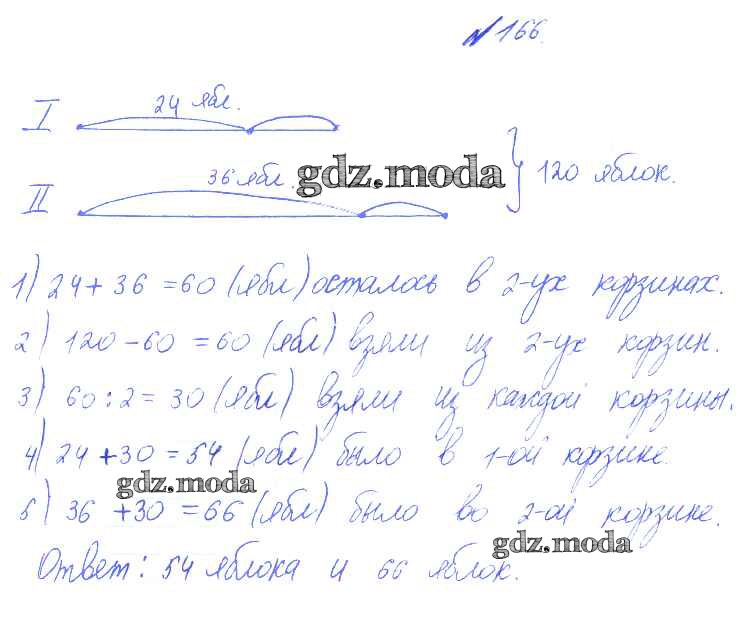 №166.
I 24 ябл.
36 ябл. gdz.moda } 120 яблок.
II
1) 24 + 36 = 60 (ябл) осталось в 2-ух корзинах.
2) 120 - 60 = 60 (ябл) взяли из 2-ух корзин.
3) 60 : 2 = 30 (ябл) взяли из каждой корзины.
4) 24 + 30 = 54 (ябл) было в 1-ой корзине.
gdz.moda
5) 36 + 30 = 66 (ябл) было во 2-ой корзине.
gdz.moda
Ответ: 54 яблока и 66 яблок.